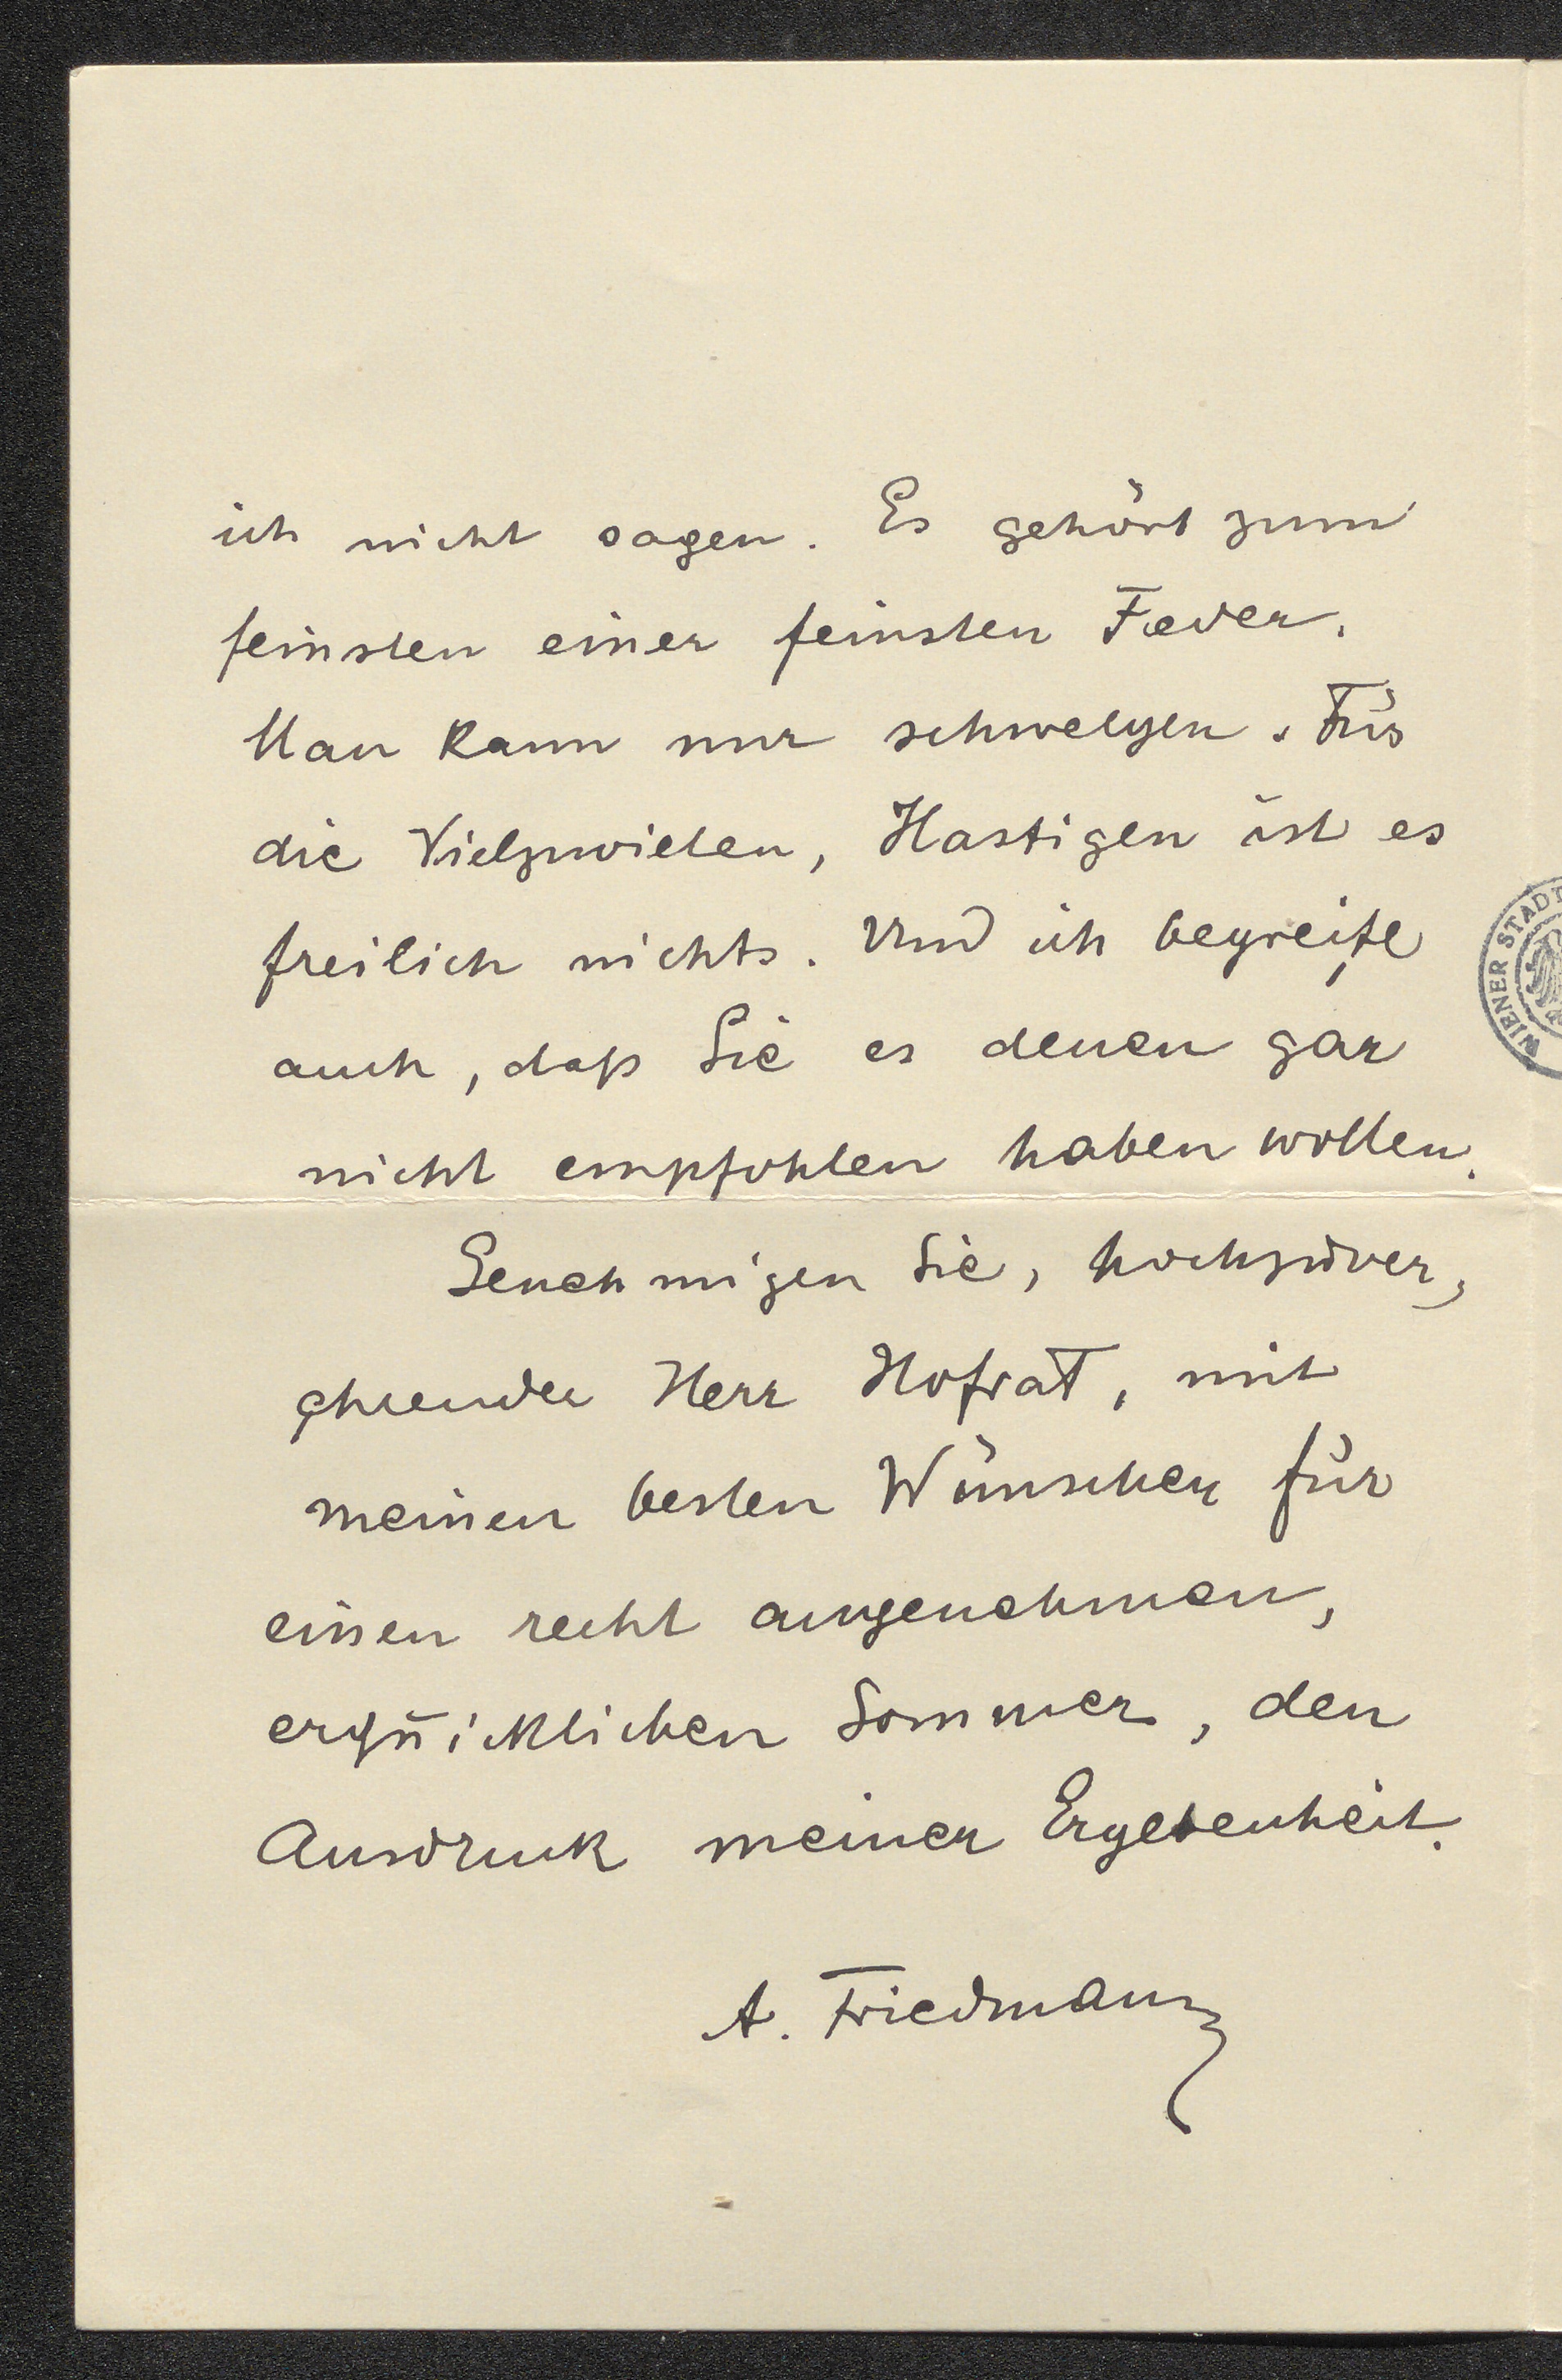 ich nicht sagen. Es gehört zum
feinsten einer feinsten Feder.
Man kann nur schwelgen. Für
die Vielzuvielen, Hastigen ist es
freilich nichts. Und ich begreife
auch, daß Sie es denen gar
nicht empfohlen haben wollen.
Genehmigen Sie, hochzuver-
ehrender Herr Hofrat, mit
meinen besten Wünschen für
einen recht angenehmen,
erquicklichen Sommer, den
Ausdruck meiner Ergebenheit.
A. Friedmann
WIENER STADT